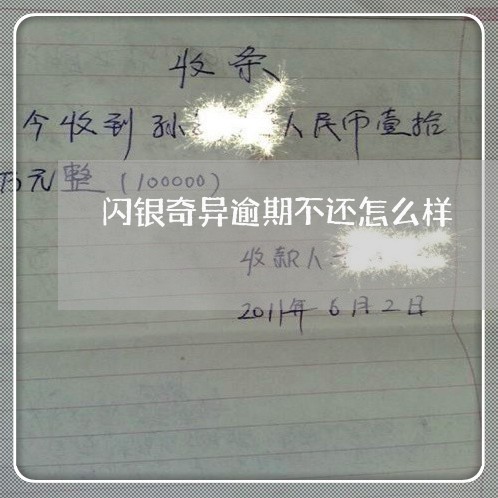 收条
今收到孙 人民币壹拾
万元整（100000）
闪银奇异逾期不还怎么样
收款人
2011年6月2日